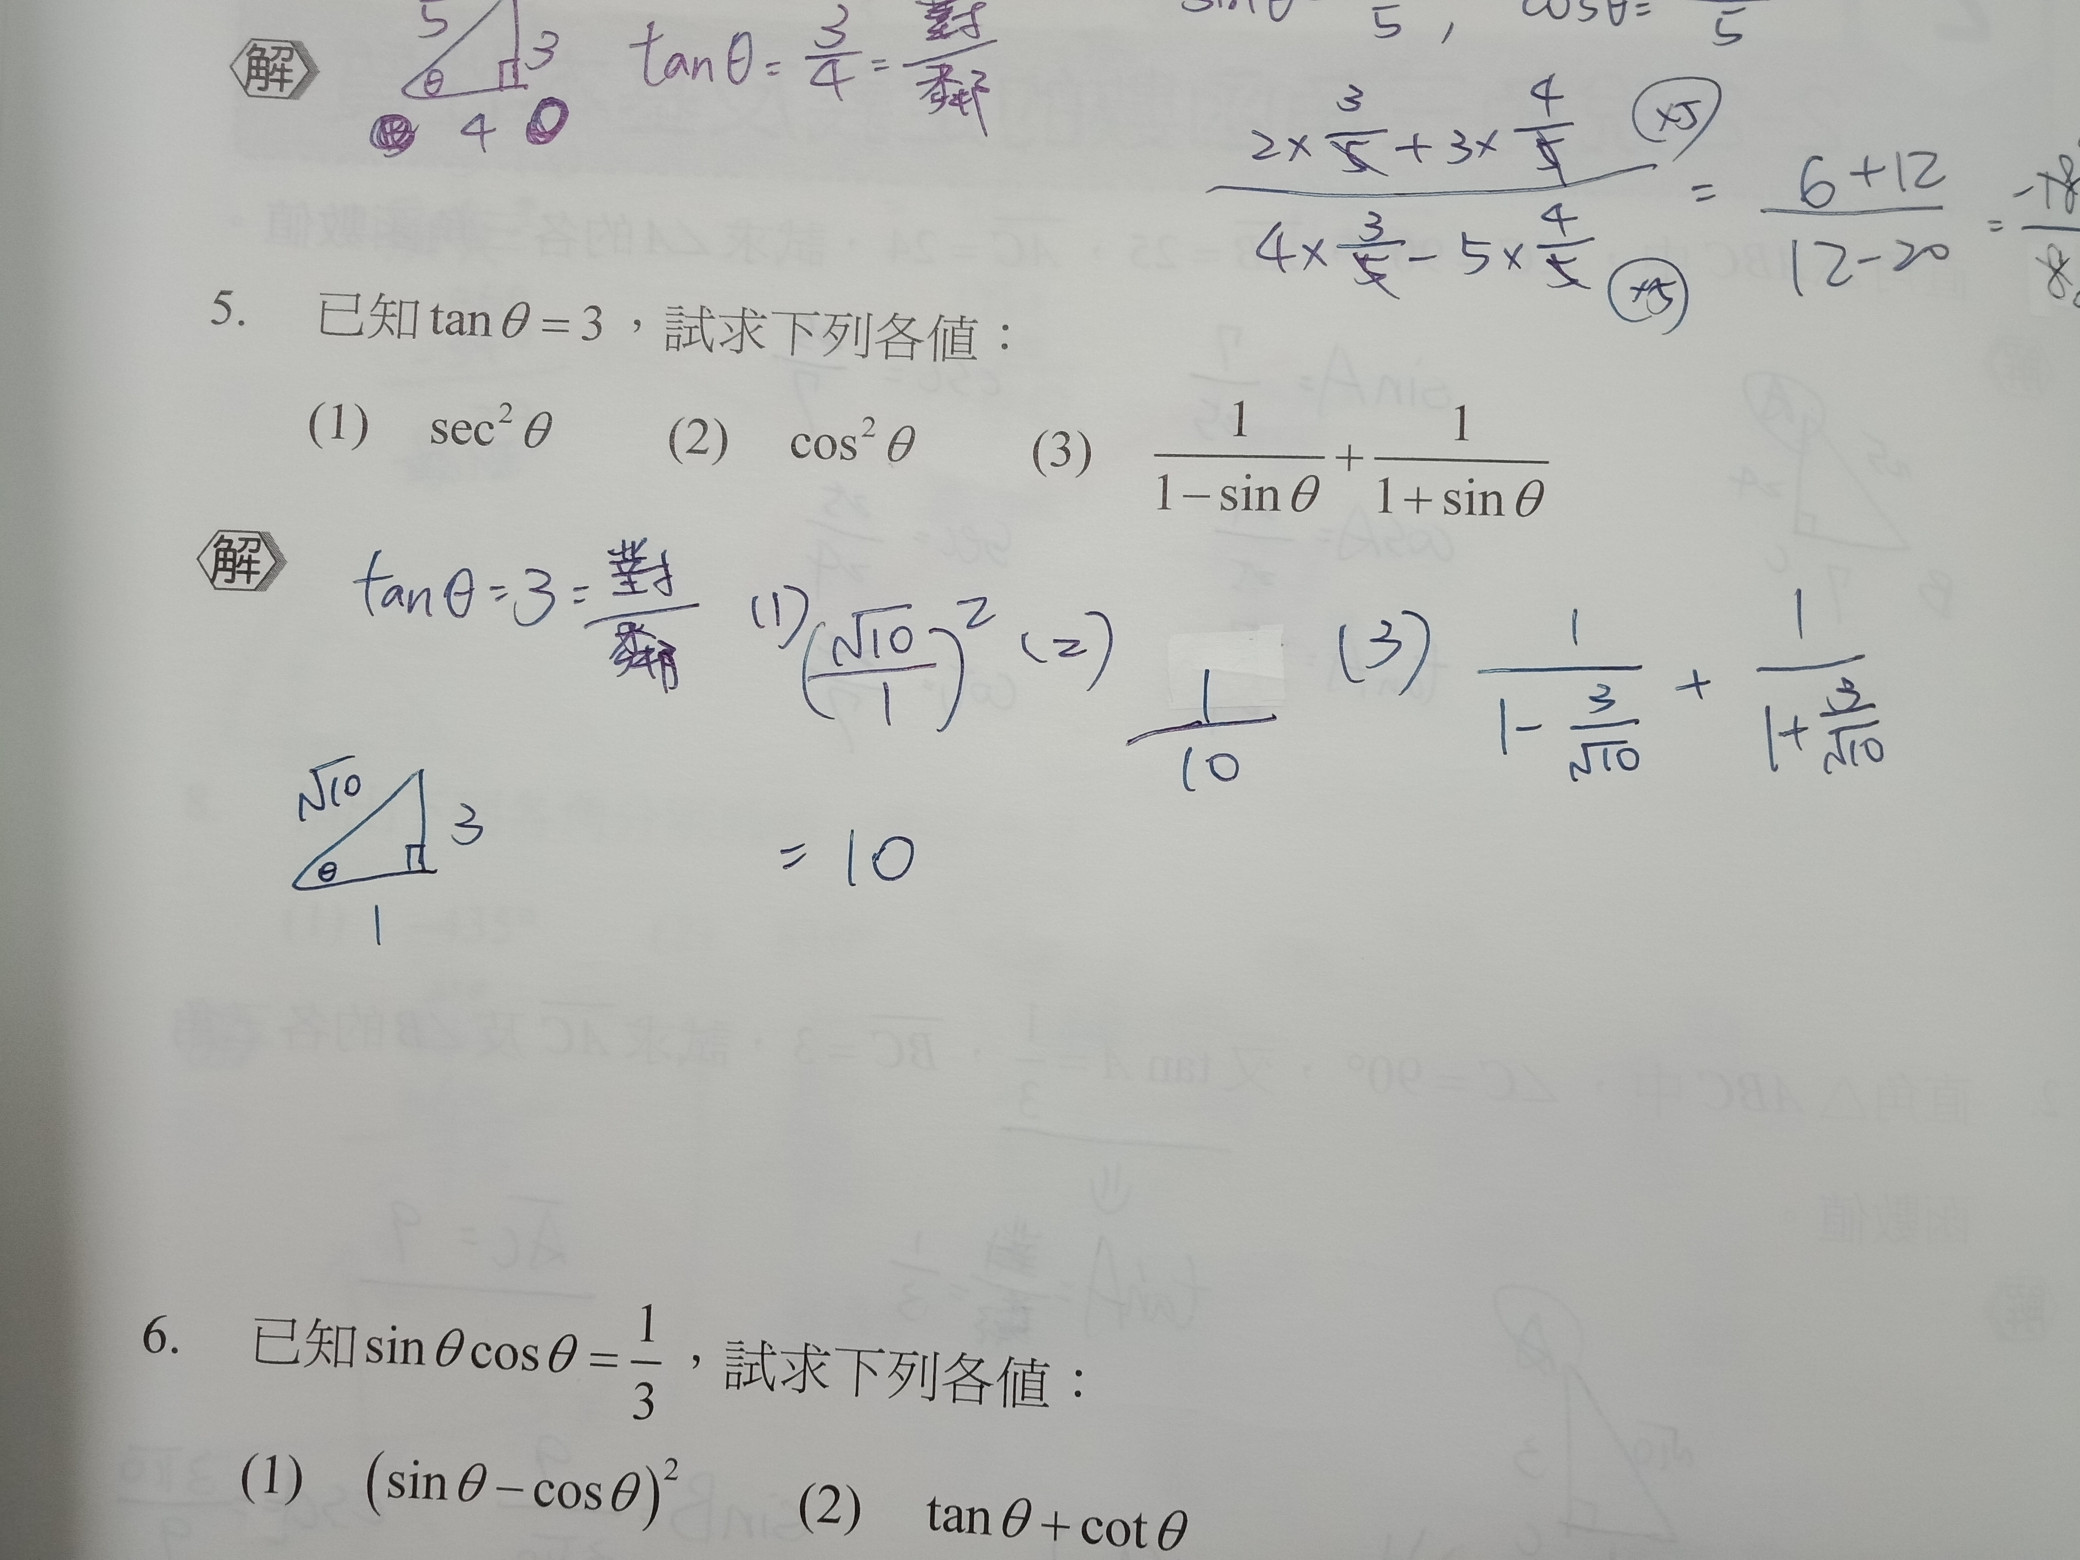 解 5 3 θ 4 tanθ = 3/4 = 對/鄰
5 , cosθ = 5
(2×3/5+3×4/5)/(4×3/5-5×4/5) ×5 ×5 = (6+12)/(12-20) = -18/8
5. 已知 tan θ = 3，試求下列各值：
(1) sec² θ (2) cos² θ (3) 1/(1−sin θ) + 1/(1+sin θ)
解 tanθ = 3 = 對/鄰 (1) (√10/1)² (2) 1/10 (3) 1/(1-3/√10) + 1/(1+3/√10)
√10 3 θ 1
= 10
6. 已知 sin θ cos θ = 1/3，試求下列各值：
(1) (sin θ − cos θ)² (2) tan θ + cot θ